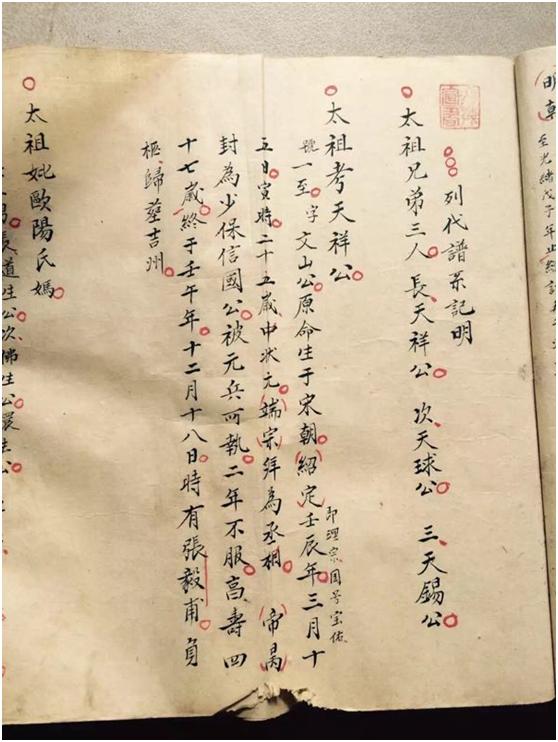 明章至光緒戊子年止
列代譜系記明
太祖兄弟三人 長天祥公 次天球公 三天錫公
太祖考天祥公
號一至字文山公原命生于宋朝(紹定)壬辰年三月十
即理宗国号宝佑
五日寅時二十五歲中狀元(端宗)拜為丞相(帝昺)
封為少保信國公被元兵所執二年不服高壽四
十七歲終于壬午年十二月十八日時有張毅甫負
柩歸塟吉州
太祖妣歐陽氏媽
長道生公次佛生公